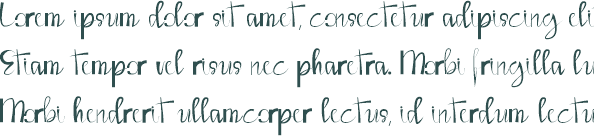 Lorem ipsum dolor sit amet, consectetur adipiscing eli
Etiam tempor vel risus nec pharetra. Morbi fringilla lu
Morbi hendrerit ullamcorper lectus, id interdum lectu